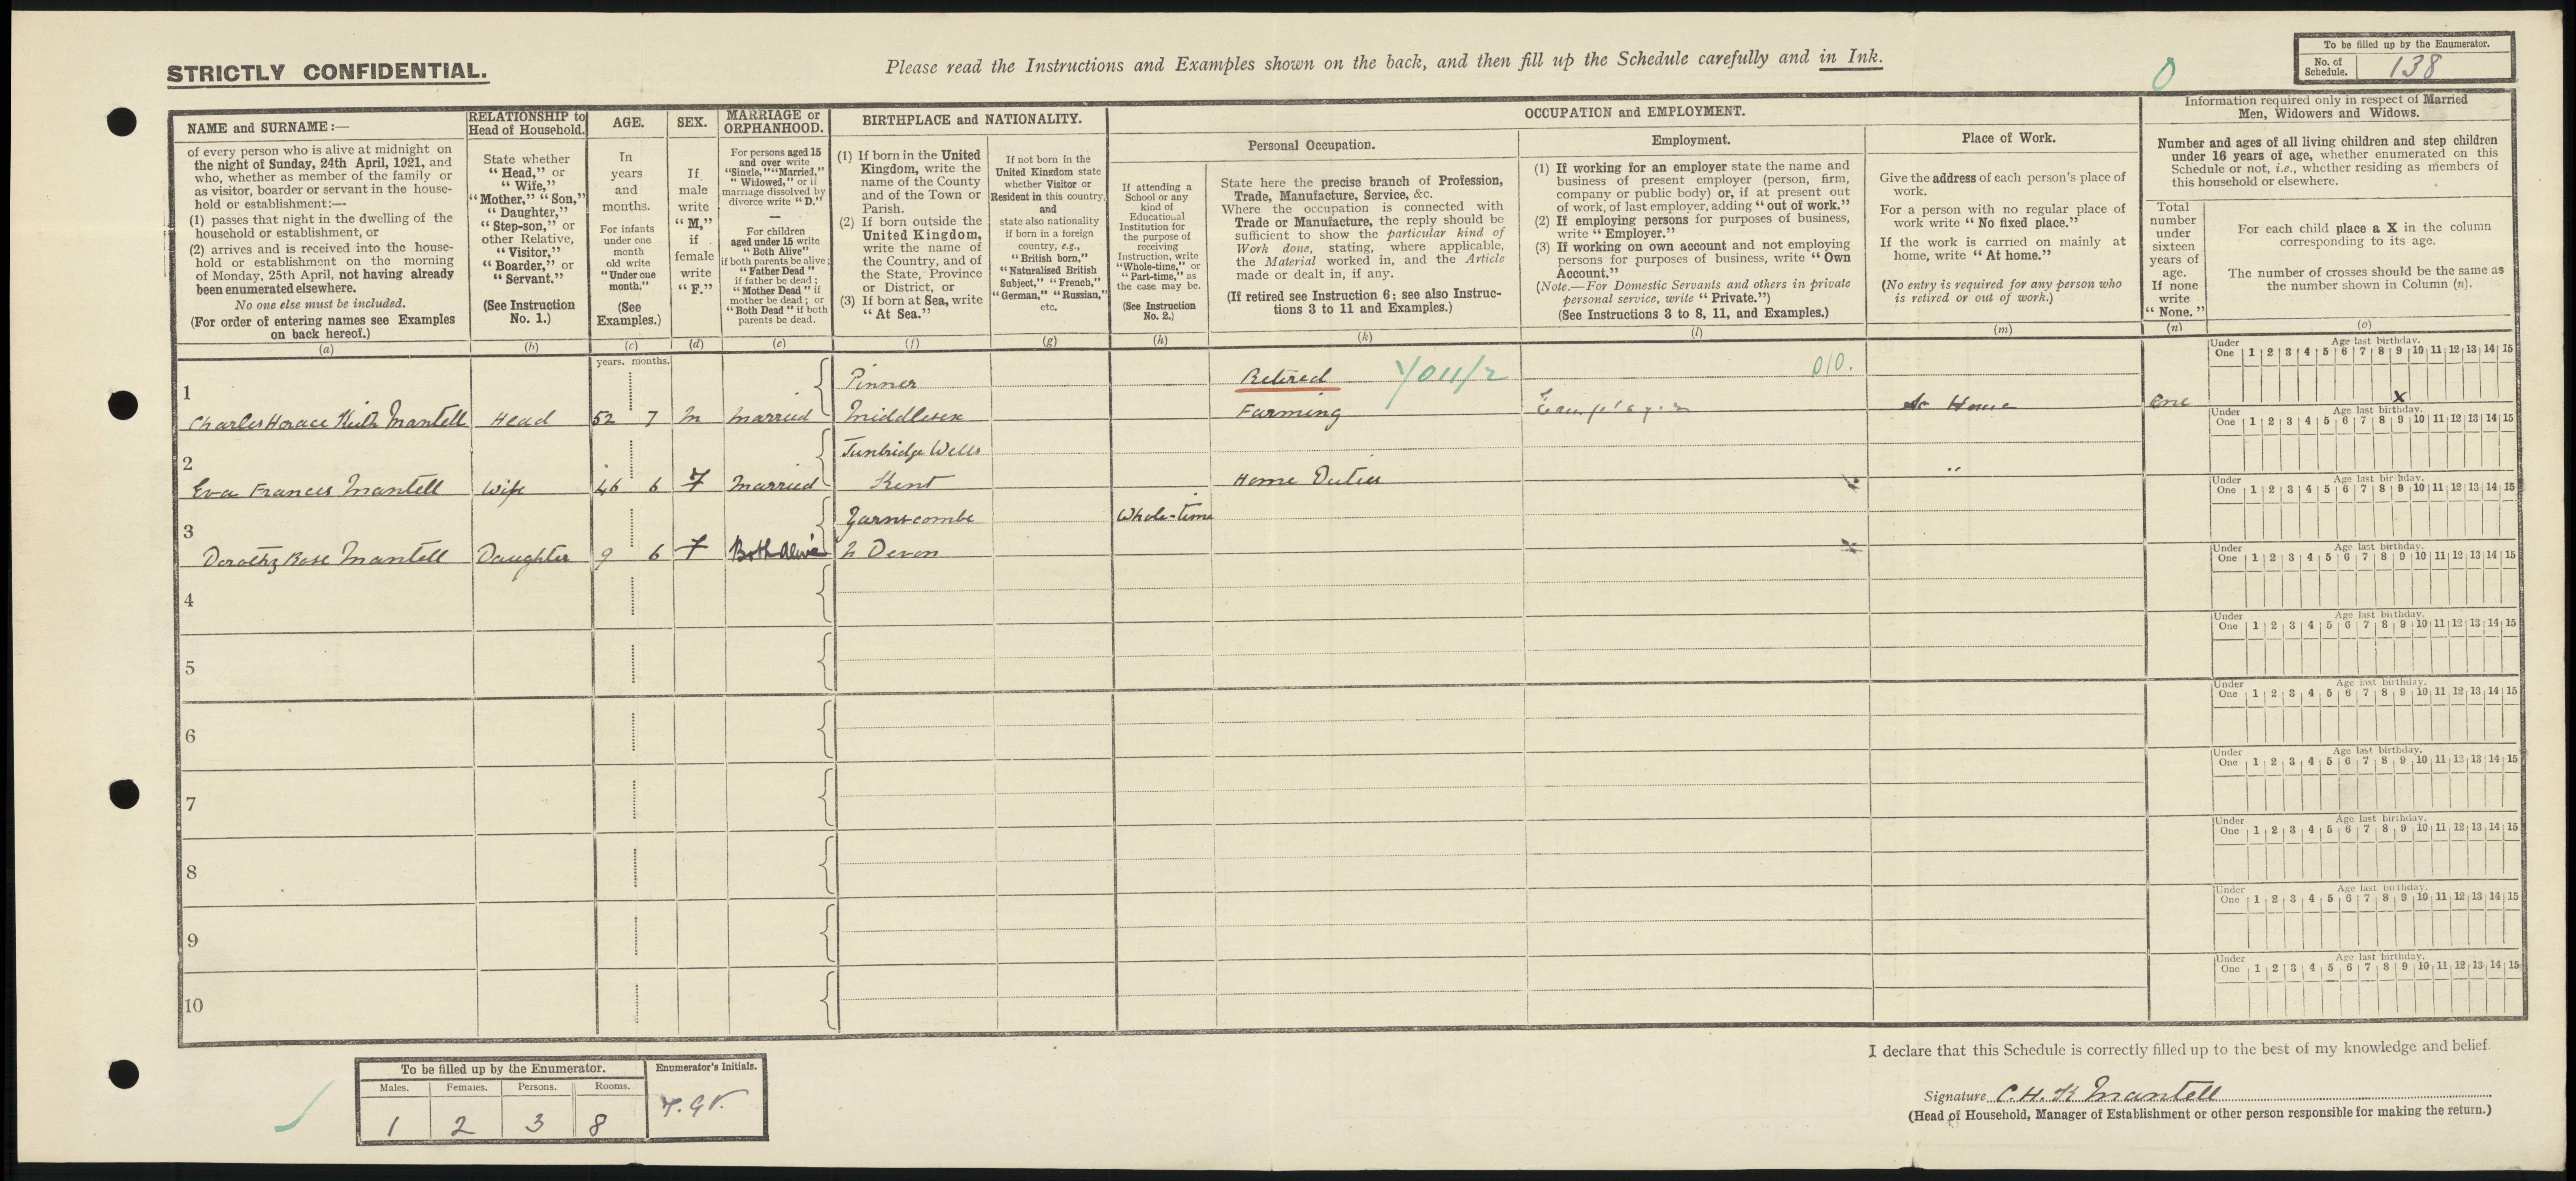 STRICTLY CONFIDENTIAL.
Please read the Instructions and Examples shown on the back, and then fill up the Schedule carefully and in Ink.
0
To be filled up by the Enumerator.
No. of Schedule. 138
NAME and SURNAME:—
of every person who is alive at midnight on
the night of Sunday, 24th April, 1921, and
who, whether as member of the family or
as visitor, boarder or servant in the house-
hold or establishment:—
(1) passes that night in the dwelling of the
household or establishment, or
(2) arrives and is received into the house-
hold or establishment on the morning
of Monday, 25th April, not having already
been enumerated elsewhere.
No one else must be included.
(For order of entering names see Examples
on back hereof.)
(a)
RELATIONSHIP to
Head of Household.
State whether
"Head," or
"Wife,"
"Mother," "Son,"
"Daughter,"
"Step-son," or
other Relative,
"Visitor,"
"Boarder," or
"Servant."
(See Instruction
No. 1.)
(b)
AGE.
In
years
and
months.
For infants
under one
month
old write
"Under one
month."
(See
Examples.)
(c)
SEX.
If
male
write
"M,"
if
female
write
"F."
(d)
MARRIAGE or
ORPHANHOOD.
For persons aged 15
and over write
"Single," "Married,"
"Widowed," or if
marriage dissolved by
divorce write "D."
—
For children
aged under 15 write
"Both Alive"
if both parents be alive;
"Father Dead"
if father be dead;
"Mother Dead" if
mother be dead; or
"Both Dead" if both
parents be dead.
(e)
BIRTHPLACE and NATIONALITY.
(1) If born in the United
Kingdom, write the
name of the County
and of the Town or
Parish.
(2) If born outside the
United Kingdom,
write the name of
the Country, and of
the State, Province
or District, or
(3) If born at Sea, write
"At Sea."
(f)
If not born in the
United Kingdom state
whether Visitor or
Resident in this country,
and
state also nationality
if born in a foreign
country, e.g.,
"British born,"
"Naturalised British
Subject," "French,"
"German," "Russian,"
etc.
(g)
OCCUPATION and EMPLOYMENT.
Personal Occupation.
If attending a
School or any
kind of
Educational
Institution for
the purpose of
receiving
Instruction, write
"Whole-time," or
"Part-time," as
the case may be.
(See Instruction
No. 2.)
(h)
State here the precise branch of Profession,
Trade, Manufacture, Service, &c.
Where the occupation is connected with
Trade or Manufacture, the reply should be
sufficient to show the particular kind of
Work done, stating, where applicable,
the Material worked in, and the Article
made or dealt in, if any.
(If retired see Instruction 6; see also Instruc-
tions 3 to 11 and Examples.)
(k)
Employment.
(1) If working for an employer state the name and
business of present employer (person, firm,
company or public body) or, if at present out
of work, of last employer, adding "out of work."
(2) If employing persons for purposes of business,
write "Employer."
(3) If working on own account and not employing
persons for purposes of business, write "Own
Account."
(Note.—For Domestic Servants and others in private
personal service, write "Private.")
(See Instructions 3 to 8, 11, and Examples.)
(l)
Place of Work.
Give the address of each person's place of
work.
For a person with no regular place of
work write "No fixed place."
If the work is carried on mainly at
home, write "At home."
(No entry is required for any person who
is retired or out of work.)
(m)
Information required only in respect of Married
Men, Widowers and Widows.
Number and ages of all living children and step children
under 16 years of age, whether enumerated on this
Schedule or not, i.e., whether residing as members of
this household or elsewhere.
Total
number
under
sixteen
years of
age.
If none
write
"None."
(n)
For each child place a X in the column
corresponding to its age.
The number of crosses should be the same as
the number shown in Column (n).
(o)
years. months.
Age last birthday.
Under One 1 2 3 4 5 6 7 8 9 10 11 12 13 14 15
1 Pinner Retired Y011/2 010.
Charles Horace Keith Mantell Head 52 7 M Married Middlesex Farming Employer At Home One X
Age last birthday.
Under One 1 2 3 4 5 6 7 8 9 10 11 12 13 14 15
2 Tunbridge Wells
Eva Frances Mantell Wife 46 6 F Married Kent Home Duties "
Age last birthday.
Under One 1 2 3 4 5 6 7 8 9 10 11 12 13 14 15
3 Yarnscombe Whole-time
Dorothy Rose Mantell Daughter 9 6 F Both Alive N Devon
Age last birthday.
Under One 1 2 3 4 5 6 7 8 9 10 11 12 13 14 15
4
Age last birthday.
Under One 1 2 3 4 5 6 7 8 9 10 11 12 13 14 15
5
Age last birthday.
Under One 1 2 3 4 5 6 7 8 9 10 11 12 13 14 15
6
Age last birthday.
Under One 1 2 3 4 5 6 7 8 9 10 11 12 13 14 15
7
Age last birthday.
Under One 1 2 3 4 5 6 7 8 9 10 11 12 13 14 15
8
Age last birthday.
Under One 1 2 3 4 5 6 7 8 9 10 11 12 13 14 15
9
Age last birthday.
Under One 1 2 3 4 5 6 7 8 9 10 11 12 13 14 15
10
To be filled up by the Enumerator.
Males. Females. Persons. Rooms.
1 2 3 8
Enumerator's Initials.
F.G.V.
I declare that this Schedule is correctly filled up to the best of my knowledge and belief.
Signature C. H. K Mantell
(Head of Household, Manager of Establishment or other person responsible for making the return.)